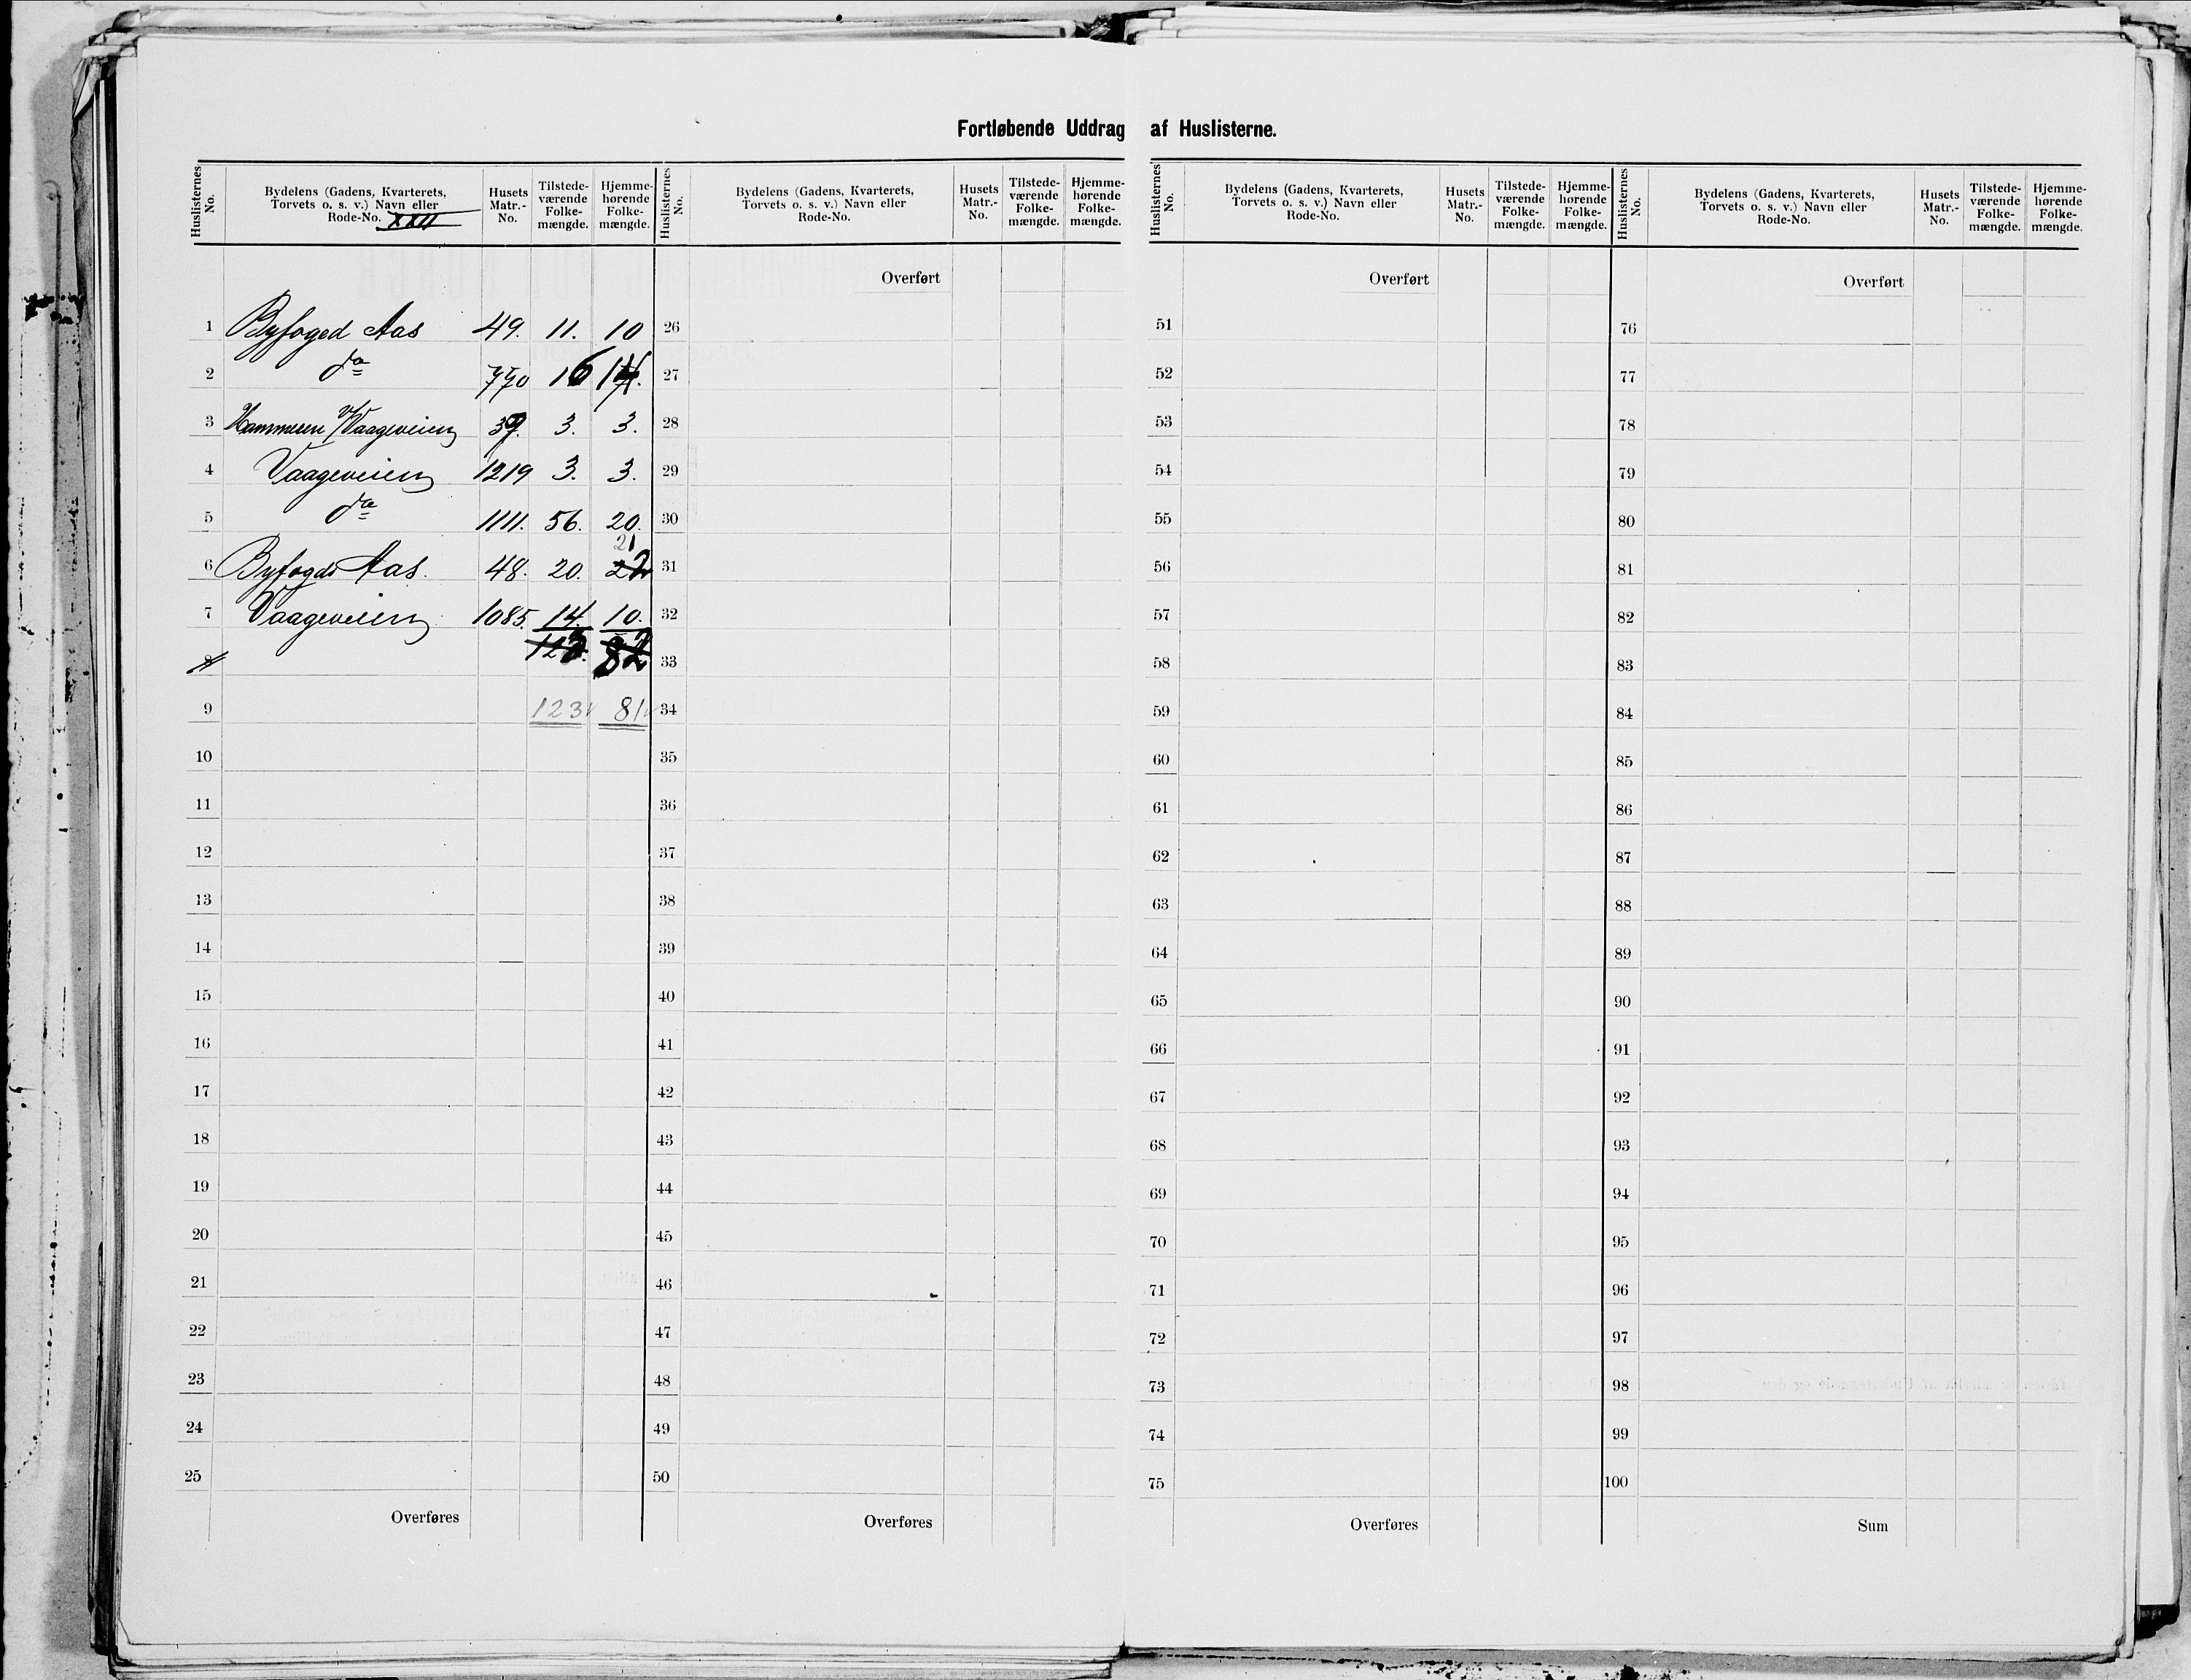 Fortløbende Uddrag af Huslisterne.
Huslisternes No. Bydelens (Gadens, Kvarterets, Torvets o. s. v.) Navn eller Rode-No. XXII Husets Matr.-No. Tilstede-værende Folke-mængde. Hjemme-hørende Folke-mængde.
1 Byfoged Aas 49. 11. 10
2 do 770 16 14.
3 Hammeren v/Vaageveien 39. 3. 3.
4 Vaageveien 1219 3. 3.
5 do 1111. 56. 20.
21
6 Byfogds Aas. 48. 20. 22
7 Vaageveien 1085. 14. 10.
8 123. 82
9 123 81
10
11
12
13
14
15
16
17
18
19
20
21
22
23
24
25
Overføres
Huslisternes No. Bydelens (Gadens, Kvarterets, Torvets o. s. v.) Navn eller Rode-No. Husets Matr.-No. Tilstede-værende Folke-mængde. Hjemme-hørende Folke-mængde.
Overført
26
27
28
29
30
31
32
33
34
35
36
37
38
39
40
41
42
43
44
45
46
47
48
49
50
Overføres
Huslisternes No. Bydelens (Gadens, Kvarterets, Torvets o. s. v.) Navn eller Rode-No. Husets Matr.-No. Tilstede-værende Folke-mængde. Hjemme-hørende Folke-mængde.
Overført
51
52
53
54
55
56
57
58
59
60
61
62
63
64
65
66
67
68
69
70
71
72
73
74
75
Overføres
Huslisternes No. Bydelens (Gadens, Kvarterets, Torvets o. s. v.) Navn eller Rode-No. Husets Matr.-No. Tilstede-værende Folke-mængde. Hjemme-hørende Folke-mængde.
Overført
76
77
78
79
80
81
82
83
84
85
86
87
88
89
90
91
92
93
94
95
96
97
98
99
100
Sum